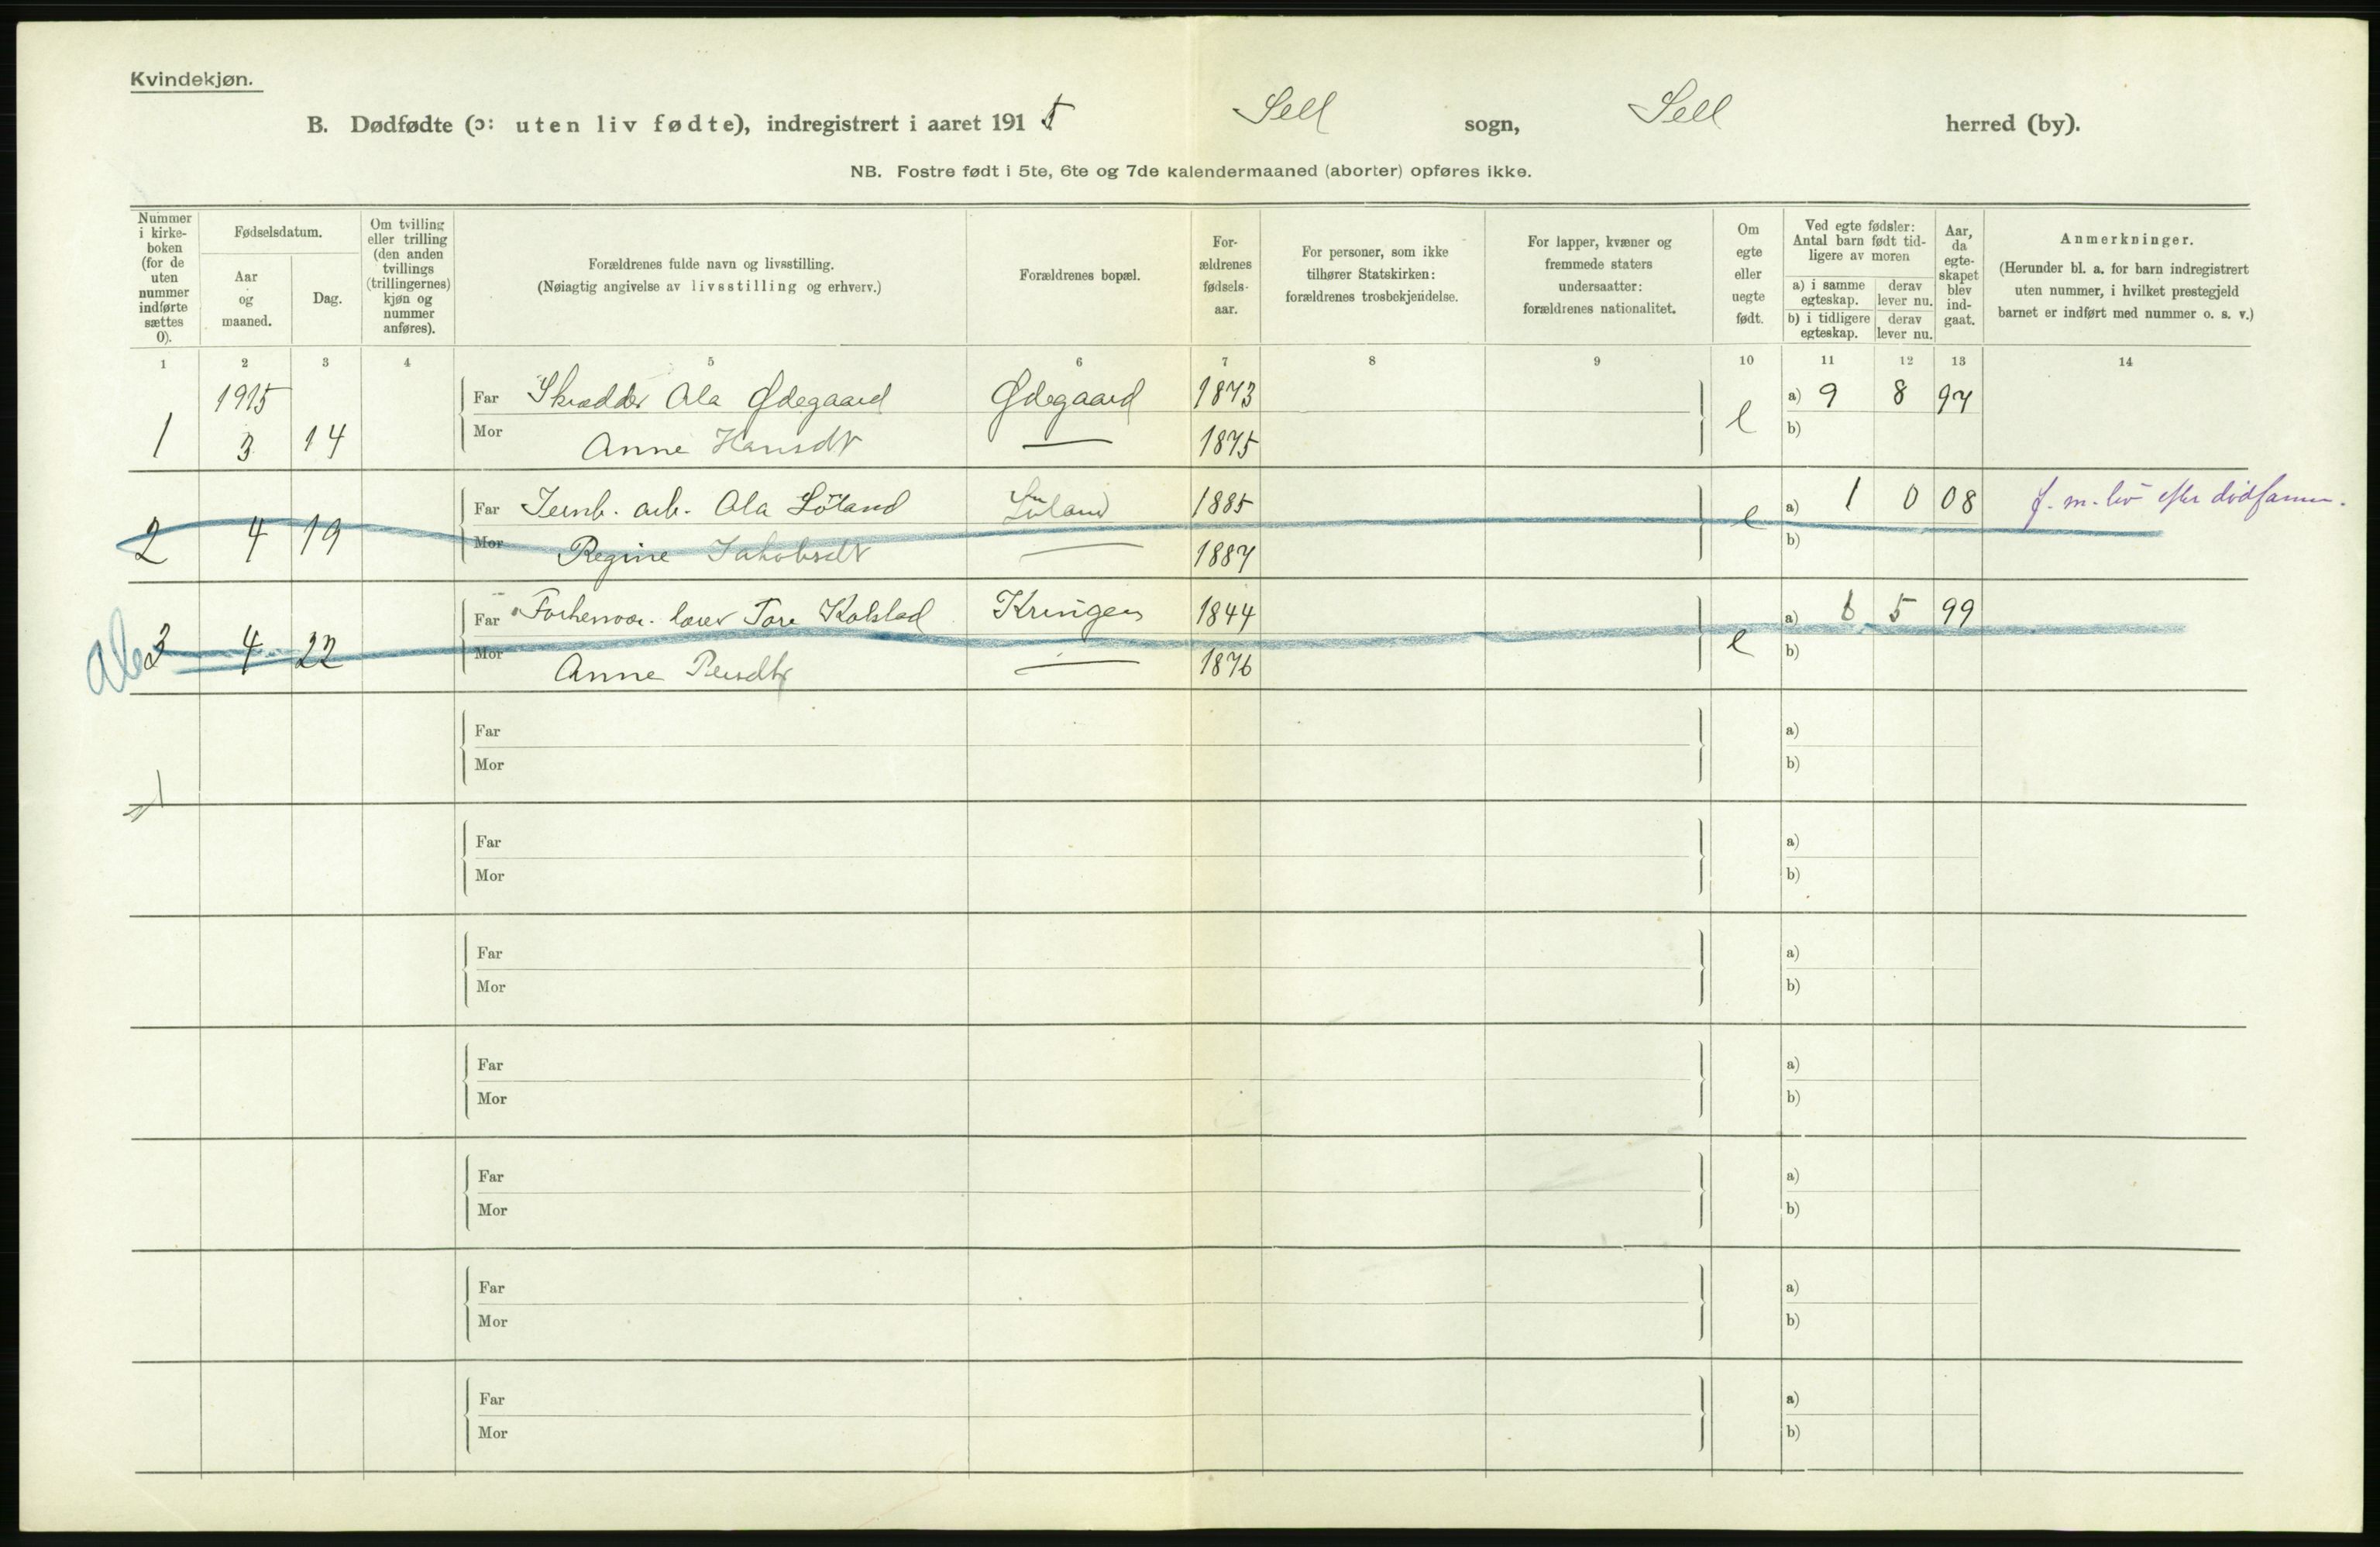 Kvindekjøn.
B. Dødfødte (ɔ: uten liv fødte), indregistrert i aaret 1915 Sell sogn, Sell herred (by).
NB. Fostre født i 5te, 6te og 7de kalendermaaned (aborter) opføres ikke.
Nummer i kirke-boken (for de uten nummer indførte sættes 0).
Fødselsdatum.
Aar og maaned.
Dag.
Om tvilling eller trilling (den anden tvillings (trillingernes) kjøn og nummer anføres).
Forældrenes fulde navn og livsstilling.
(Nøiagtig angivelse av livsstilling og erhverv.)
Forældrenes bopæl.
For-ældrenes fødsels-aar.
For personer, som ikke tilhører Statskirken: forældrenes trosbekjendelse.
For lapper, kvæner og fremmede staters undersaatter: forældrenes nationalitet.
Om egte eller uegte født.
Ved egte fødsler: Antal barn født tid-ligere av moren
a) i samme egteskap. derav lever nu.
b) i tidligere egteskap. derav lever nu.
Aar, da egte-skapet blev ind-gaat.
Anmerkninger.
(Herunder bl. a. for barn indregistrert uten nummer, i hvilket prestegjeld barnet er indført med nummer o. s. v.)
1 2 3 4 5 6 7 8 9 10 11 12 13 14
1915 Far Skrædder Ola Ødegaard Ødegaard 1873 a) 9 8 97
1 3 14 Mor Anne Hansdt — 1875 e b)
Far Jernb. arb. Ola Löland Löland 1885 a) 1 0 08 f. m. liv efter
2 4 19 Mor Regine Jakobsdt — 1887 e b)
Far Forhenvær. lærer Tore Kolstad Kringen 1844 a) 6 5 99
Ab 3 4 22 Mor Anne Persdtr — 1876 e b)
Far a)
Mor b)
1
Far a)
Mor b)
Far a)
Mor b)
Far a)
Mor b)
Far a)
Mor b)
Far a)
Mor b)
Far a)
Mor b)